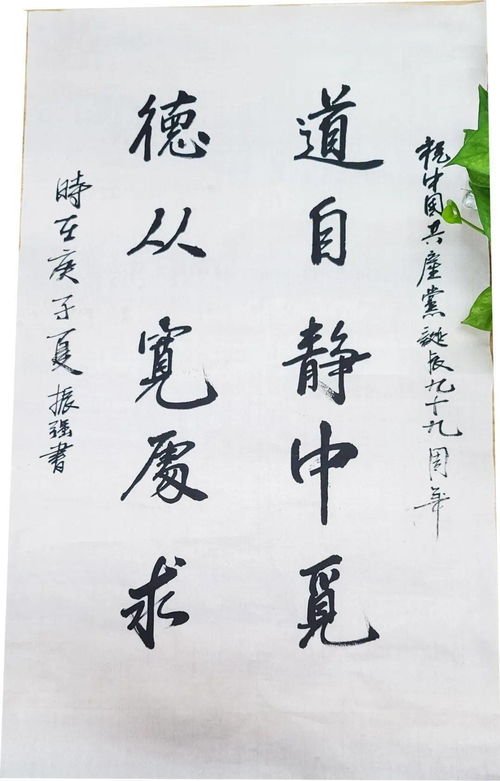 祝中国共產黨誕辰九十九周年
道自静中覓
德从寬處求
時在庚子夏振强書